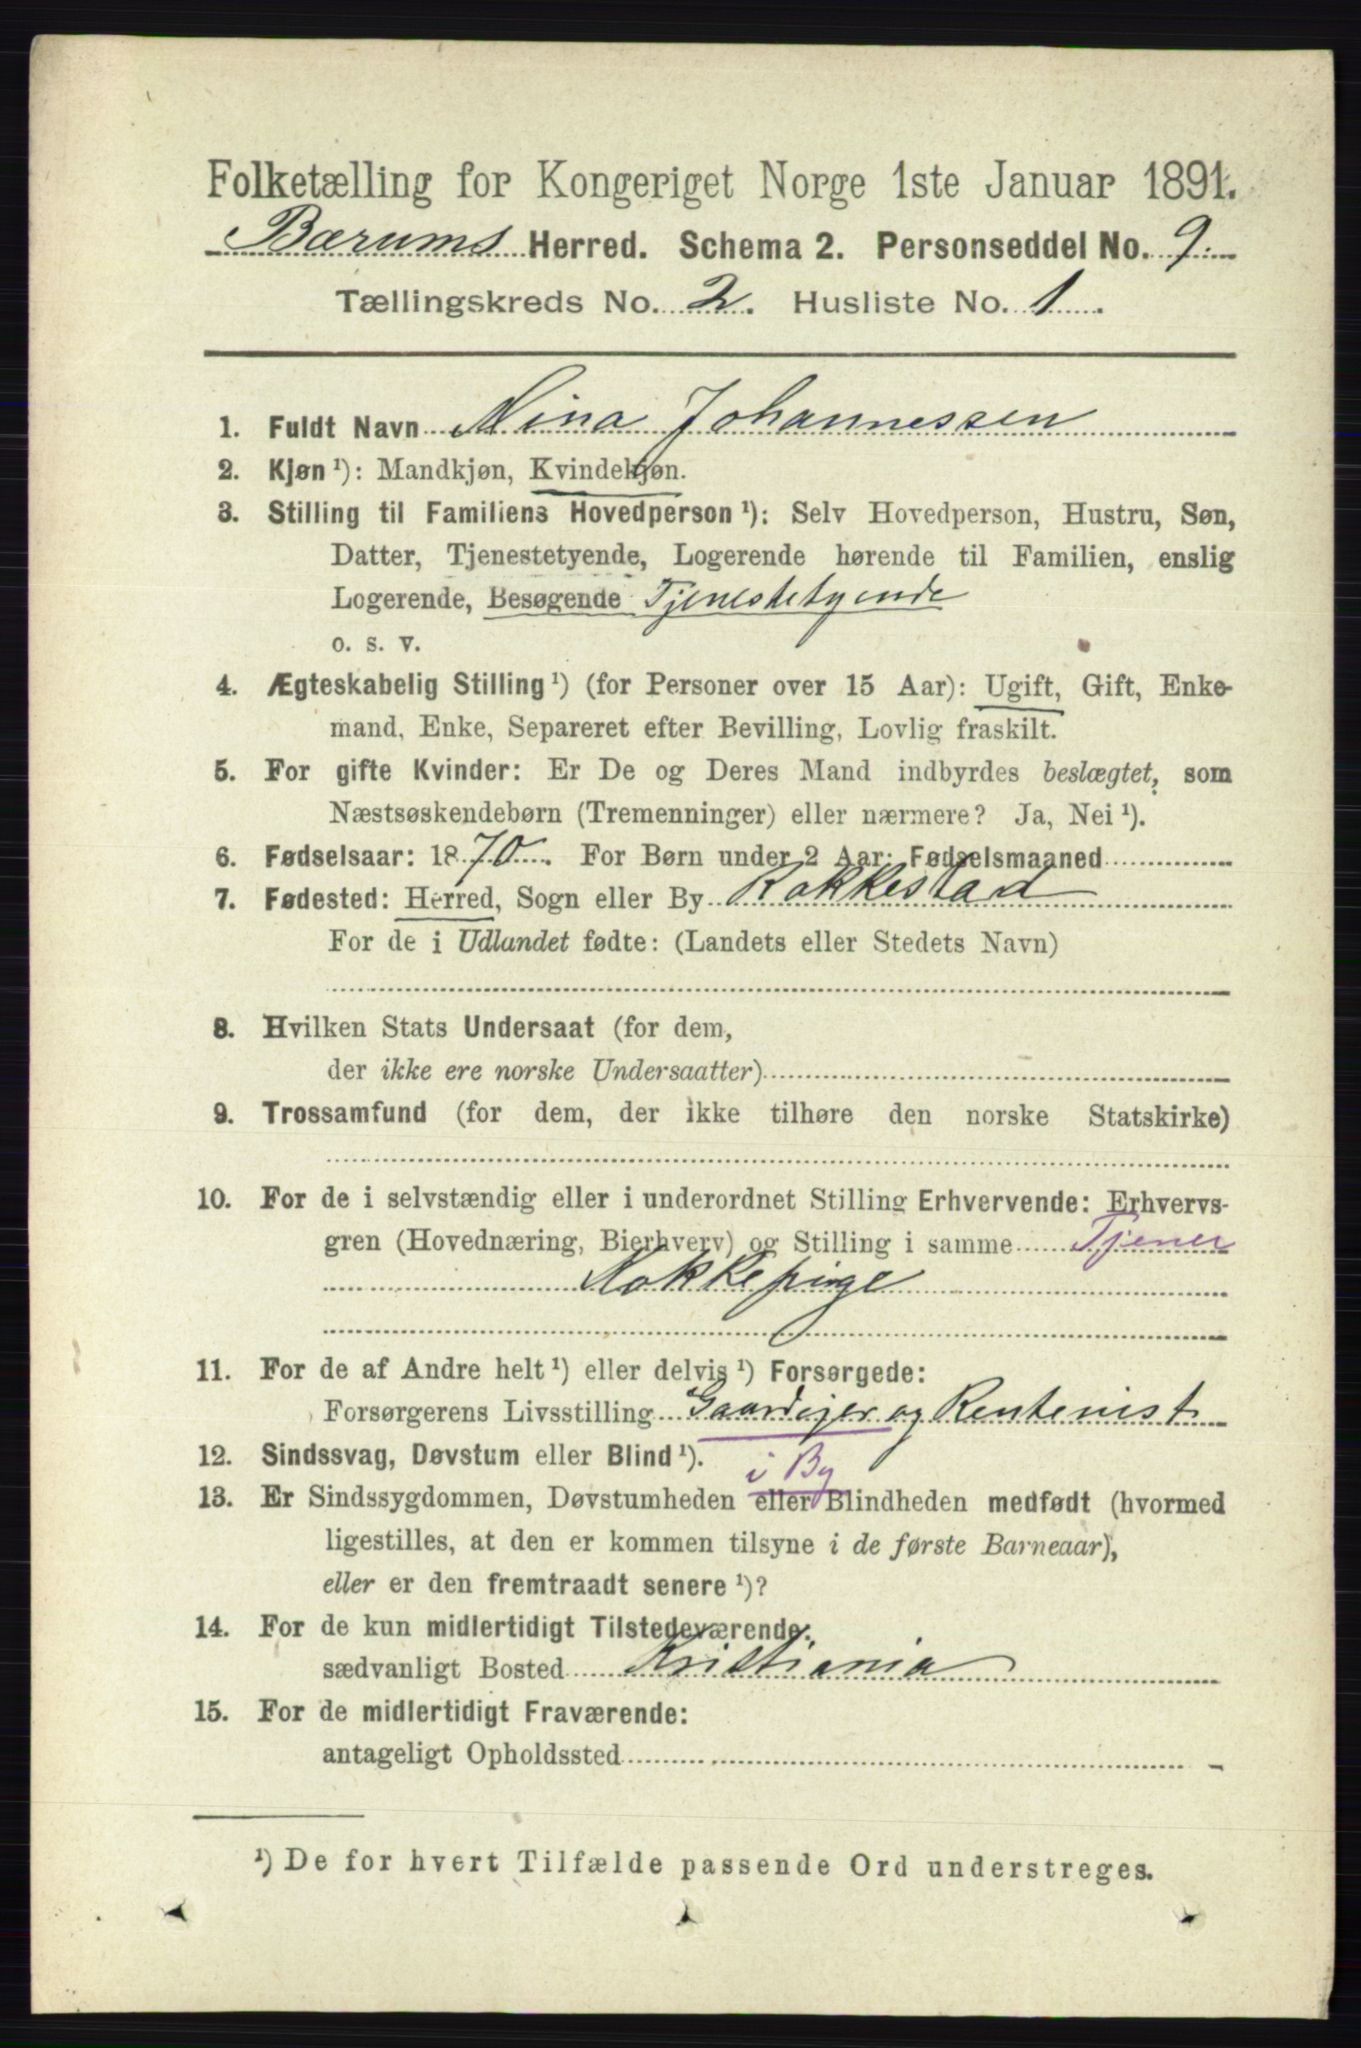 Folketælling for Kongeriget Norge 1ste Januar 1891.
Bærums Herred. Schema 2. Personseddel No. 9.
Tællingskreds No. 2. Husliste No. 1.
1. Fuldt Navn Mina Johannessen
2. Kjøn ¹): Mandkjøn, Kvindekjøn.
3. Stilling til Familiens Hovedperson ¹): Selv Hovedperson, Hustru, Søn,
Datter, Tjenestetyende, Logerende hørende til Familien, enslig
Logerende, Besøgende Tjenestetyende
o. s. v.
4. Ægteskabelig Stilling ¹) (for Personer over 15 Aar): Ugift, Gift, Enke-
mand, Enke, Separeret efter Bevilling, Lovlig fraskilt.
5. For gifte Kvinder: Er De og Deres Mand indbyrdes beslægtet, som
Næstsøskendebørn (Tremenninger) eller nærmere? Ja, Nei ¹).
6. Fødselsaar: 1870. For Børn under 2 Aar: Fødselsmaaned
7. Fødested: Herred, Sogn eller By Rakkestad
For de i Udlandet fødte: (Landets eller Stedets Navn)
8. Hvilken Stats Undersaat (for dem,
der ikke ere norske Undersaatter)
9. Trossamfund (for dem, der ikke tilhøre den norske Statskirke)
10. For de i selvstændig eller i underordnet Stilling Erhvervende: Erhvervs-
gren (Hovednæring, Bierhverv) og Stilling i samme Tjener
Kokkepige
11. For de af Andre helt ¹) eller delvis ¹) Forsørgede:
Forsørgerens Livsstilling Gaardejer og Rentenist
12. Sindssvag, Døvstum eller Blind ¹).
i By
13. Er Sindssygdommen, Døvstumheden eller Blindheden medfødt (hvormed
ligestilles, at den er kommen tilsyne i de første Barneaar),
eller er den fremtraadt senere ¹)?
14. For de kun midlertidigt Tilstedeværende:
sædvanligt Bosted Kristiania
15. For de midlertidigt Fraværende:
antageligt Opholdssted
¹) De for hvert Tilfælde passende Ord understreges.